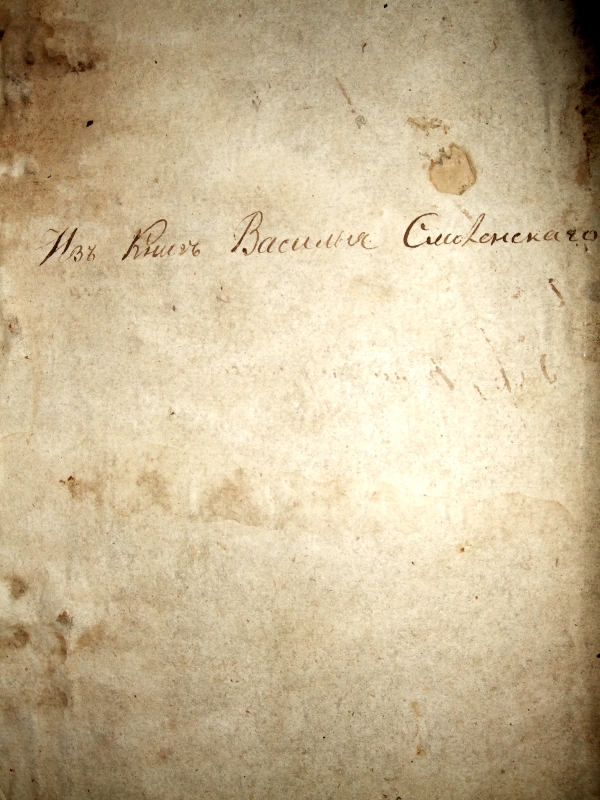 Изъ Книгъ Василья Смоленскаго